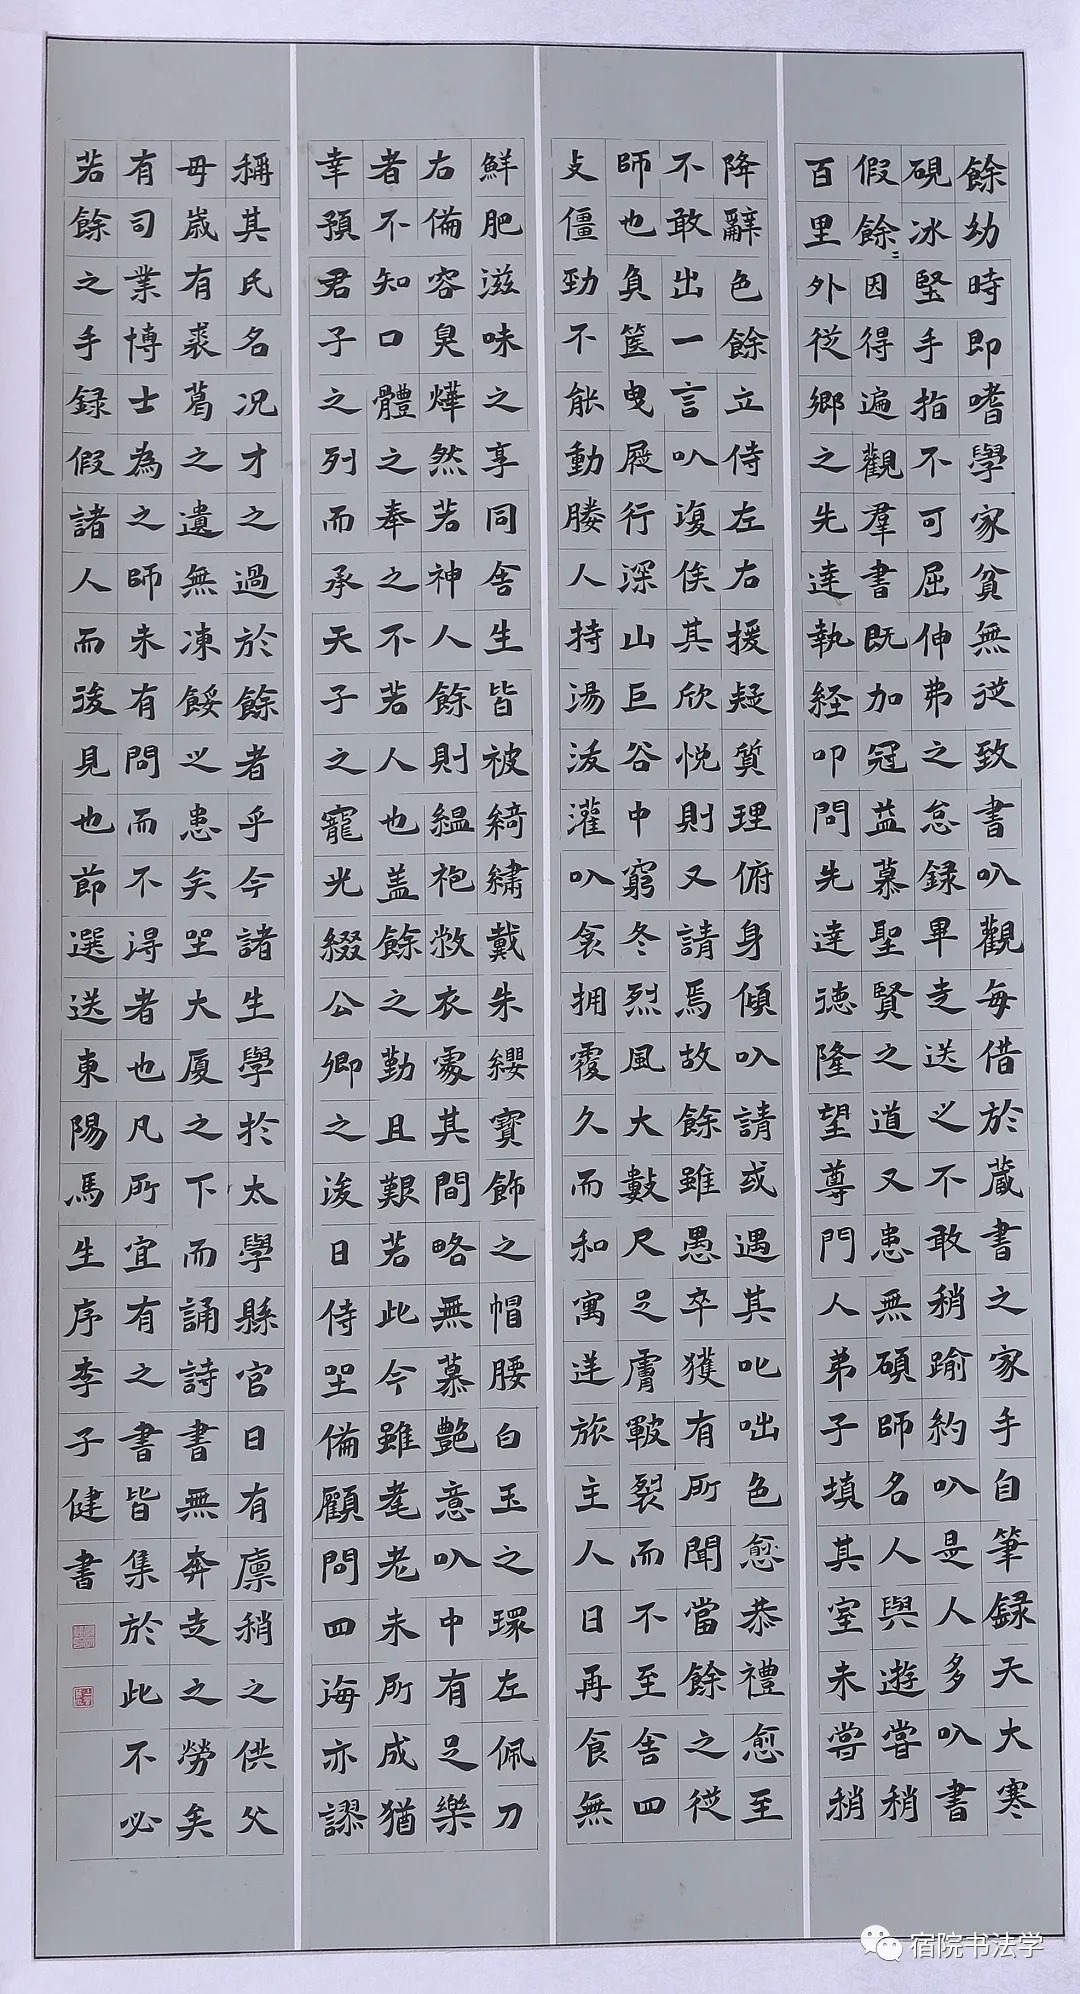 餘幼時即嗜學家貧無從致書以觀每借於藏書之家手自筆録天大寒
硯冰堅手指不可屈伸弗之怠録畢走送之不敢稍踰約以是人多以書
假餘〻因得遍觀羣書既加冠益慕聖賢之道又患無碩師名人與遊嘗稍
百里外從鄉之先達執経叩問先達德隆望尊門人弟子填其室未嘗稍
降辭色餘立侍左右援疑質理俯身傾以請或遇其叱咄色愈恭禮愈至
不敢出一言以復俟其欣悦則又請焉故餘雖愚卒獲有所聞當餘之從
師也負篋曳屣行深山巨谷中窮冬烈風大數尺足膚皸裂而不至舍四
支僵勁不能動媵人持湯沃灌以衾拥覆久而和寓逆旅主人日再食無
鮮肥滋味之享同舍生皆被綺繡戴朱纓寶飾之帽腰白玉之環左佩刀
右俻容臭燁然若神人餘則緼袍敝衣處其間略無慕艷意以中有足樂
者不知口體之奉之不若人也蓋餘之勤且艱若此今雖耄老未所成猶
幸預君子之列而承天子之寵光綴公卿之後日侍坐俻顧問四海亦謬
稱其氏名况才之過於餘者乎今諸生學於太學縣官日有廪稍之供父
母歲有裘葛之遺無凍餒之患矣坐大厦之下而誦詩書無奔走之勞矣
有司業博士為之師未有問而不得者也凡所宜有之書皆集於此不必
若餘之手録假諸人而後見也節選送東陽馬生序李子健書
宿院书法学